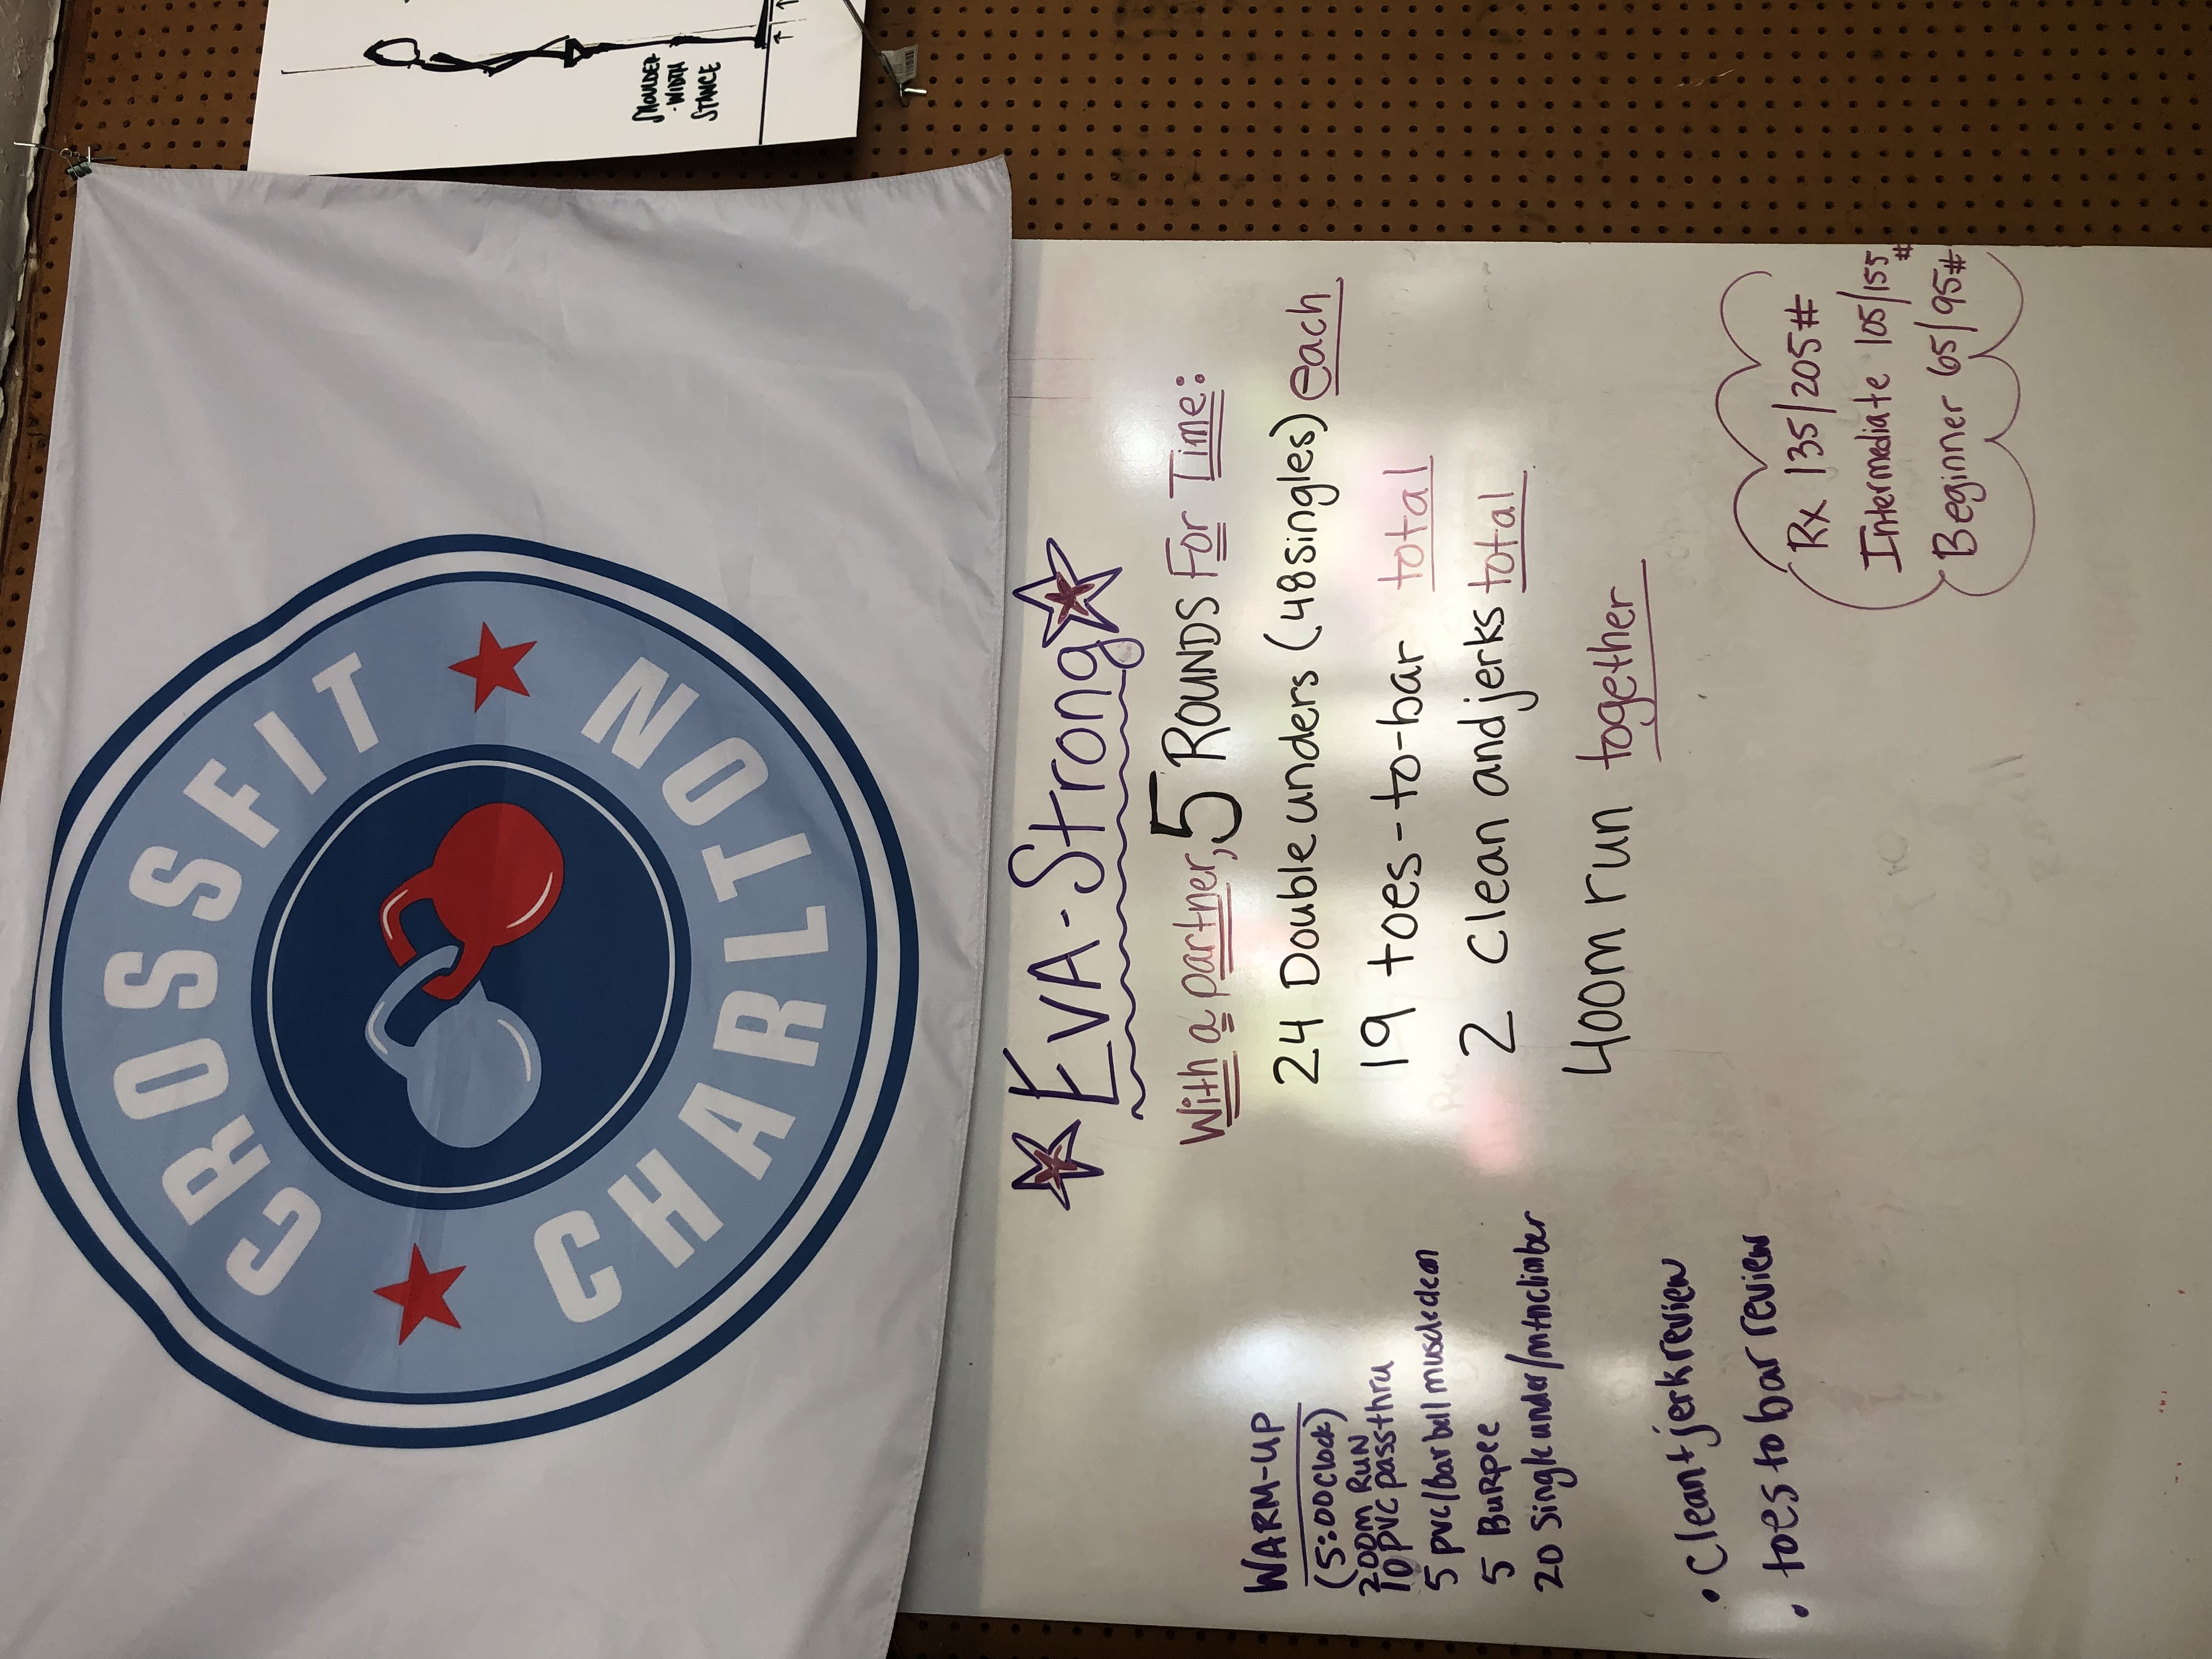 CROSSFIT
CHARLTON
SHOULDER
-WIDTH
STANCE
EVA-Strong
With a partner, 5 ROUNDS For Time:
24 Double unders (48 singles) each
19 toes-to-bar total
2 Clean and jerks total
400m run together
WARM-UP
(5:00 Clock)
200m RUN
10 pvc passthru
5 pvc/barbell muscle clean
5 BURpee
20 Single under/mtnclimber
• Clean + jerk review
• toes to bar review
Rx 135/205#
Intermediate 105/155#
Beginner 65/95#